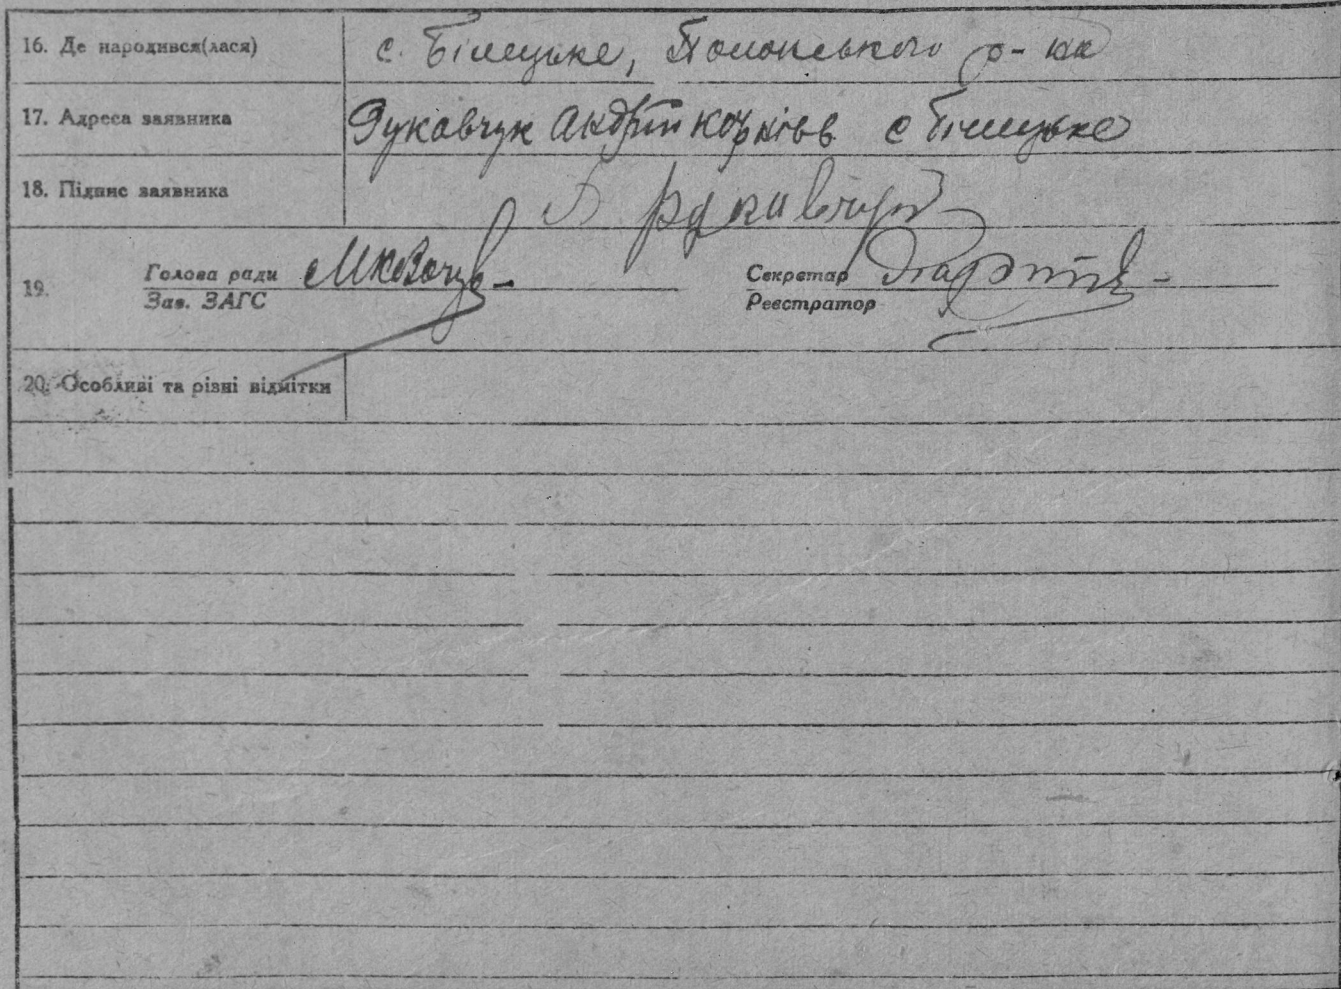 16. Де народився(лася) с. Білецьке, Полонського р-на
17. Адреса заявника Рукавчук Андрій Корнієв с Білецьке
18. Підпис заявника
19. Голова ради Секретар
Зав. ЗАГС Реєстратор
20. Особливі та різні відмітки